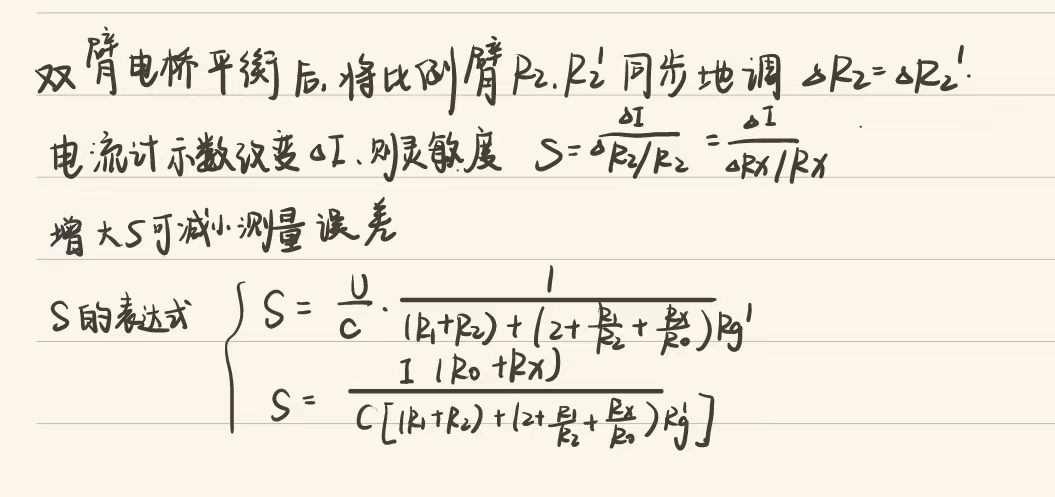 双臂电桥平衡后,将比例臂 R₂、R₂' 同步地调 ΔR₂=ΔR₂'.
电流计示数改变 ΔI、则灵敏度 S = ΔI / (ΔR₂/R₂) = ΔI / (ΔRx/Rx)
增大S可减小测量误差
S的表达式 { S = U/C · 1 / ((R₁+R₂) + (2 + R₁/R₂ + Rx/R₀)Rg')
S = I(R₀+Rx) / (C[(R₁+R₂) + (2 + R₁/R₂ + Rx/R₀)Rg'])